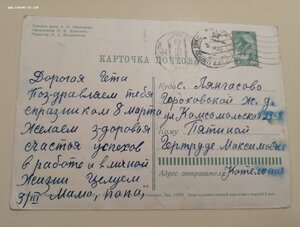 КАРТОЧКА ПОЧТОВАЯ
Дорогая Гета
Поздравляем тебя
с праздником 8 марта
Желаем здоровья
счастья успехов
в работе и в личной
жизни Целуем
Мама, папа,
Куда с. Лянгасово
ж. д.
ул Комсомольская 29-8
Кому Пятиной
Гертруде Максимовне
Адрес отправителя